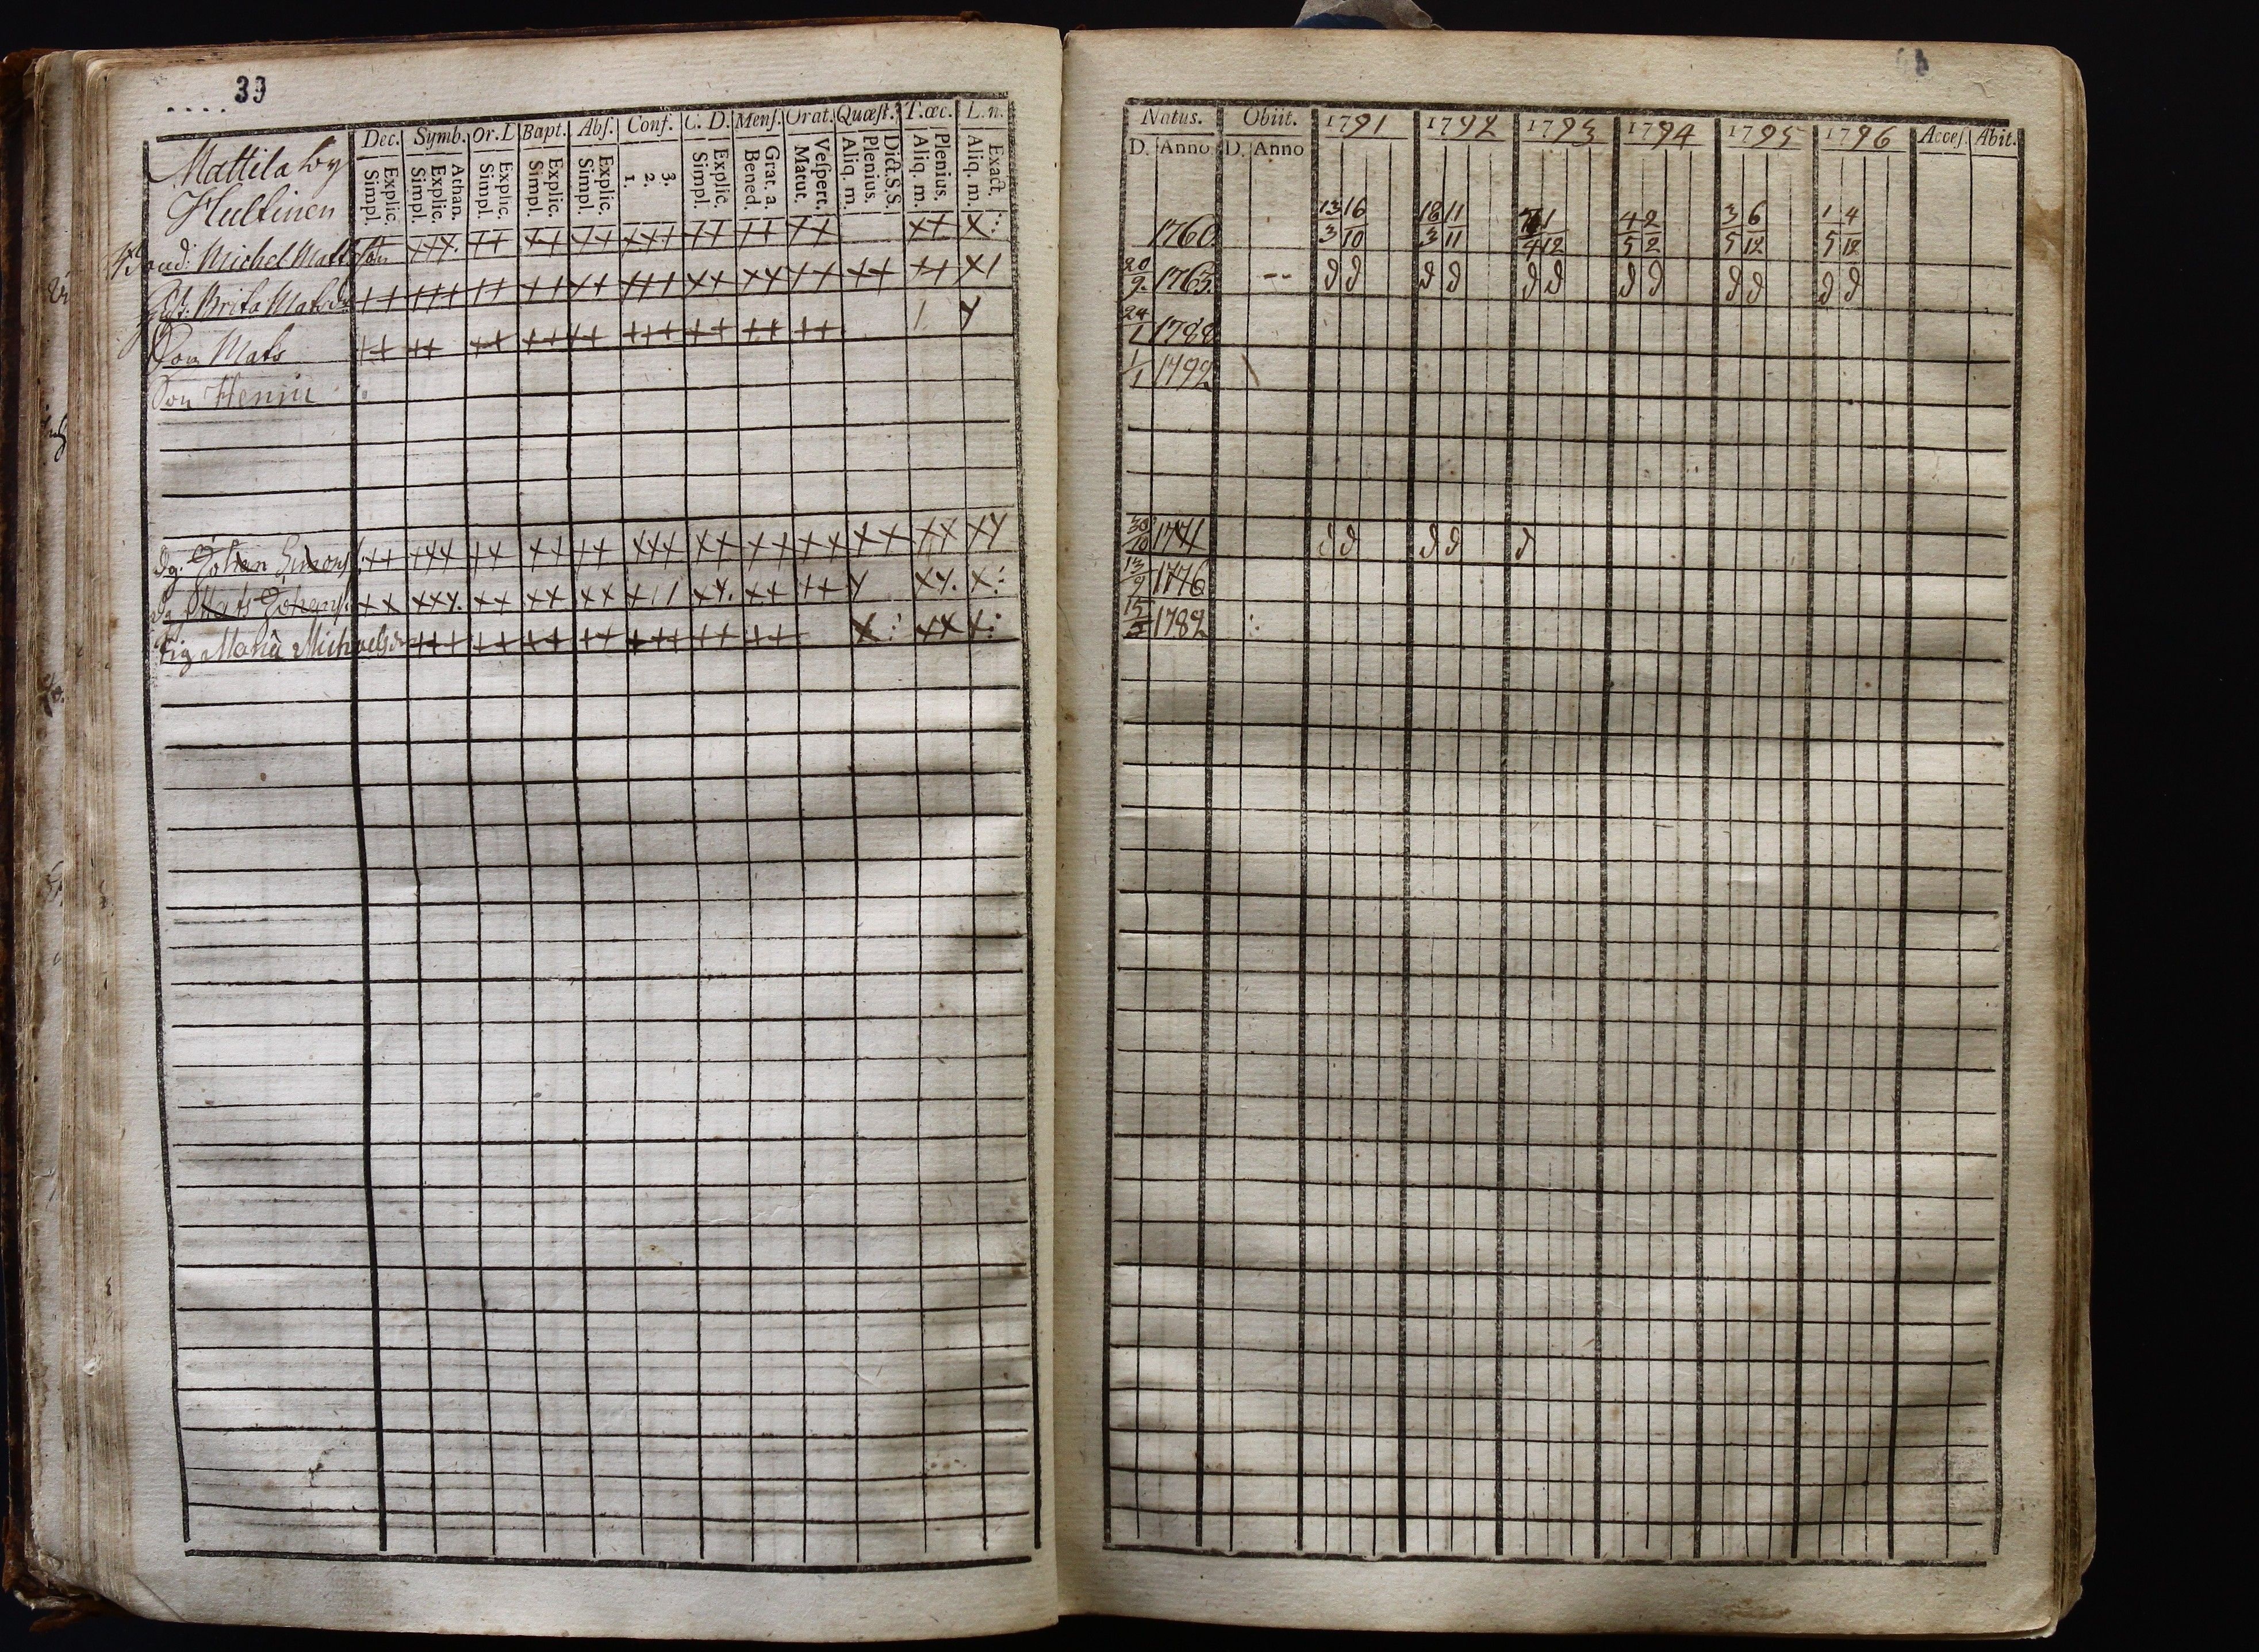 39
Dec. Symb. Or. D. Bapt. Abſ. Conf. C. D. Menſ. Orat. Quæſt. T. œc. L. n.
Explic. Simpl. Athan. Explic. Simpl. Explic. Simpl. Explic. Simpl. Explic. Simpl. 3. 2. 1. Explic. Simpl. Grat. a. Bened. Veſpert. Matut. Dict. S. S. Plenius. Aliq. m. Plenius. Aliq. m. Exact. Aliq. m.
Mattila by
Hultinen
Michel Matts son
Brita Matsdr
Son Mats
Son Henric
dg. Johan Simons
dg. Mats Johans
Pig Maria Michaelsdr
Natus. Obiit. 1791 1792 1793 1794 1795 1796 Acceſ. Abit.
D. Anno D. Anno
1760 13/3 16/10 18/3 11/11 1/12 4/5 2/2 3/5 6/12 1/5 4/12
20/9 1763 -- d d d d d d d d d d d d
24/1 1788
1/1 1792
30/10 1771 d d d d d
13/9 1776
15/5 1782